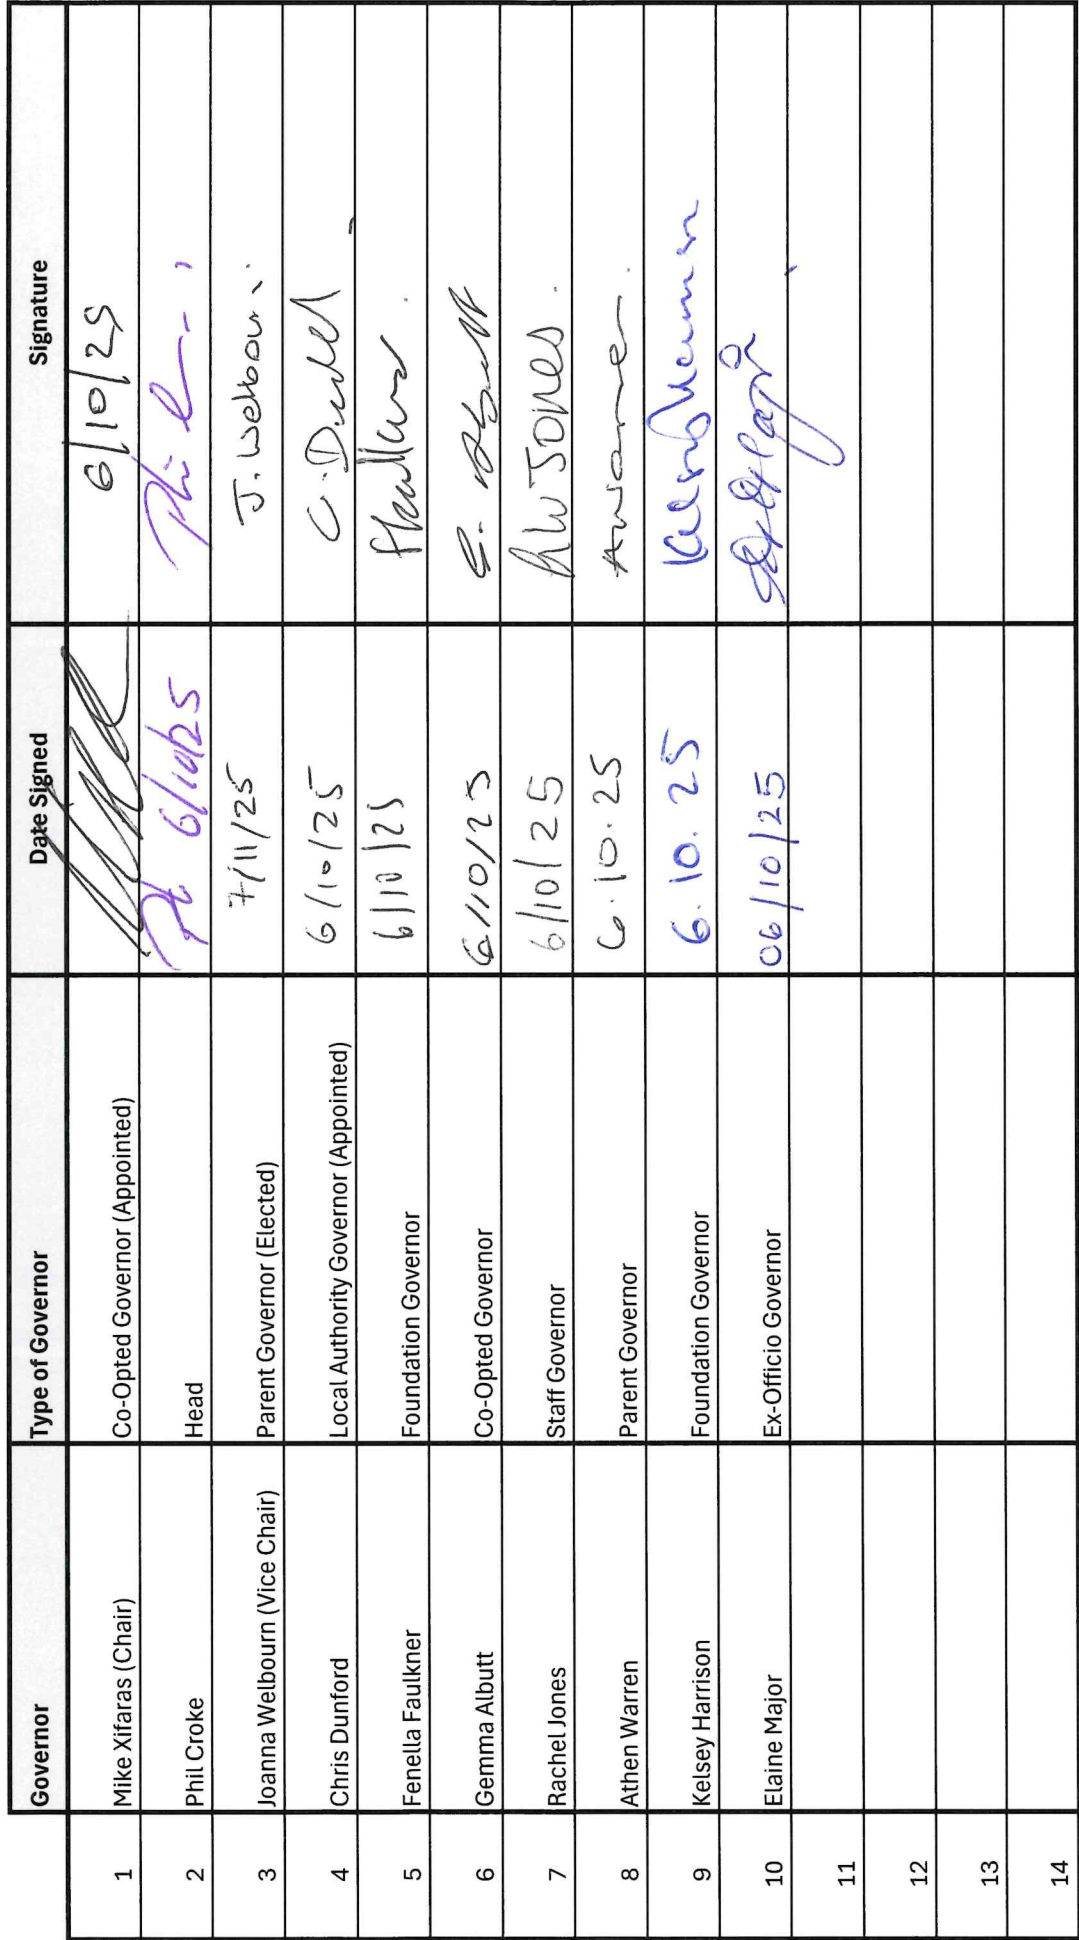 Governor Type of Governor Date Signed Signature
1 Mike Xifaras (Chair) Co-Opted Governor (Appointed) 6/10/25
2 Phil Croke Head 6/10/25 Phil
3 Joanna Welbourn (Vice Chair) Parent Governor (Elected) 7/11/25 J. Welbourn
4 Chris Dunford Local Authority Governor (Appointed) 6/10/25
5 Fenella Faulkner Foundation Governor 6/10/25
6 Gemma Albutt Co-Opted Governor 6/10/25
7 Rachel Jones Staff Governor 6/10/25 RW Jones.
8 Athen Warren Parent Governor 6.10.25
9 Kelsey Harrison Foundation Governor 6.10.25
10 Elaine Major Ex-Officio Governor 06/10/25
11
12
13
14